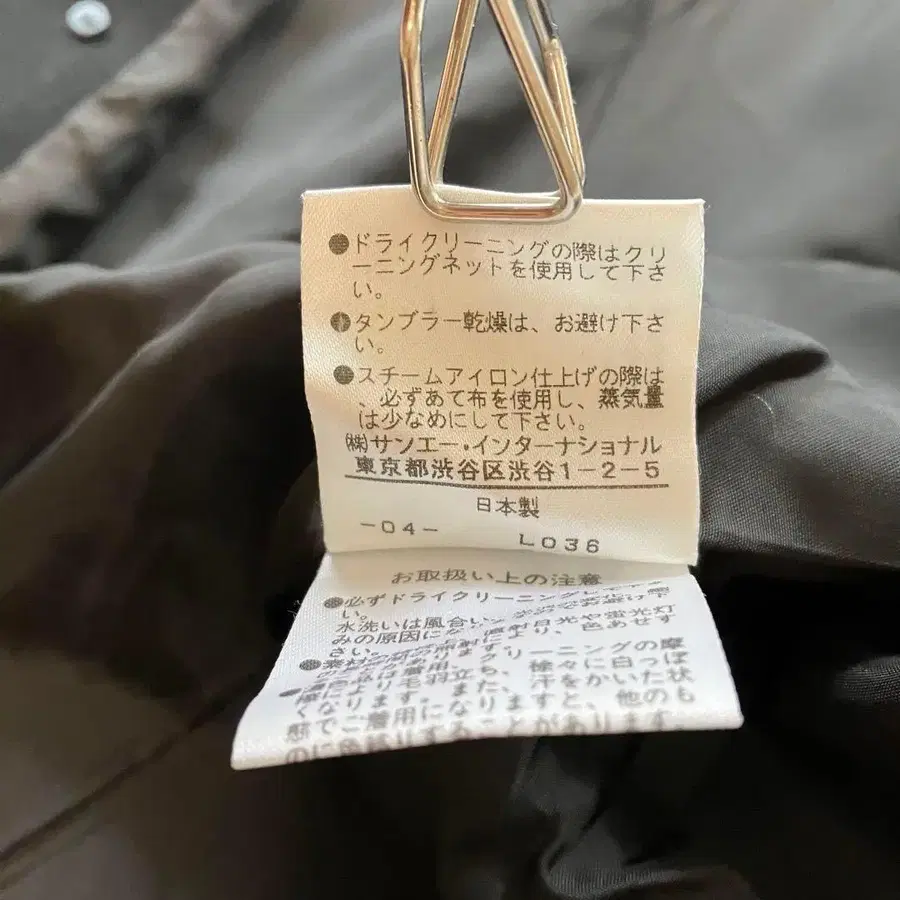 ●ドライクリーニングの際はクリ
ーニングネットを使用して下さ
い。
●タンブラー乾燥は、お避け下さ
い。
●スチームアイロン仕上げの際は
、必ずあて布を使用し、蒸気量
は少なめにして下さい。
㈱サンエー・インターナショナル
東京都渋谷区渋谷1-2-5
日本製
-04- L036
お取扱い上の注意
●必ずドライクリーニングして
い。
水洗いは風合い、
みの原因になり
さい。
●素材の
クリーニングの摩
擦により毛羽立ち、徐々に白っぽ
くなります。また、汗をかいた状
態でご着用になりますと、他のも
のに色移りすることがあります